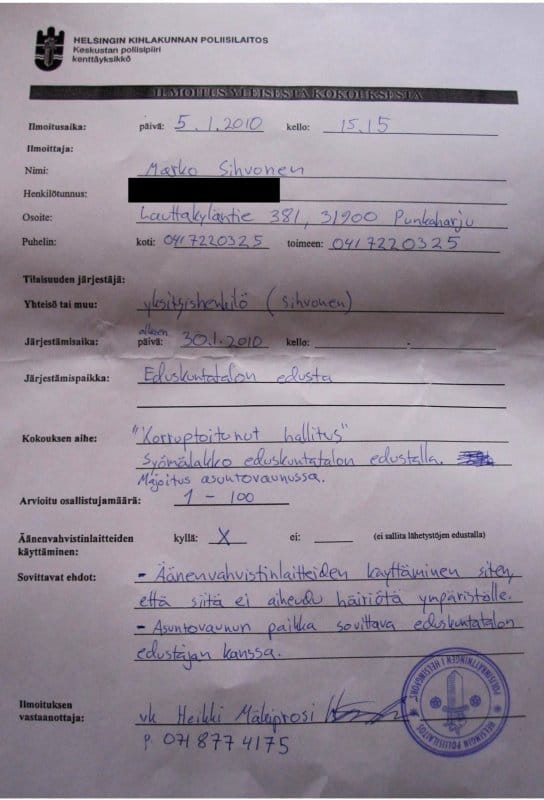 HELSINGIN KIHLAKUNNAN POLIISILAITOS
Keskustan poliisipiiri
kenttäyksikkö
ILMOITUS YLEISESTÄ KOKOUKSESTA
Ilmoitusaika: päivä: 5.1.2010 kello: 15.15
Ilmoittaja:
Nimi: Marko Sihvonen
Henkilötunnus:
Osoite: Lauttakyläntie 381, 31900 Punkaharju
Puhelin: koti: 0417220325 toimeen: 0417220325
Tilaisuuden järjestäjä:
Yhteisö tai muu: yksityishenkilö (Sihvonen)
Järjestämisaika: alkaen päivä: 30.1.2010 kello: -
Järjestämispaikka: Eduskuntatalon edusta
Kokouksen aihe: "Korruptoitunut hallitus"
Syömälakko eduskuntatalon edustalla.
Majoitus asuntovaunussa.
Arvioitu osallistujamäärä: 1 - 100
Äänenvahvistinlaitteiden kyllä: X ei: (ei sallita lähetystöjen edustalla)
käyttäminen:
Sovittavat ehdot: - Äänenvahvistinlaitteiden käyttäminen siten,
että siitä ei aiheudu häiriötä ympäristölle.
- Asuntovaunun paikka sovittava eduskuntatalon
edustajan kanssa.
Ilmoituksen
vastaanottaja: vk Heikki Mäkiprosi
p. 071 877 4175
POLISINRÄTTNINGEN I HELSINGFORS
HELSINGIN POLIISILAITOS